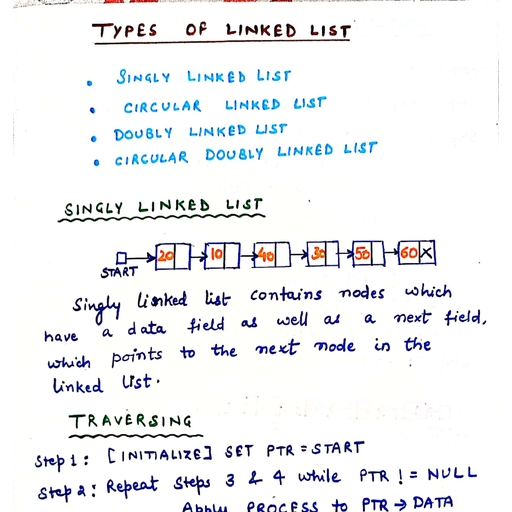 TYPES OF LINKED LIST
• SINGLY LINKED LIST
• CIRCULAR LINKED LIST
• DOUBLY LINKED LIST
• CIRCULAR DOUBLY LINKED LIST
SINGLY LINKED LIST
20 10 40 30 50 60 X
START
Singly linked list contains nodes which
have a data field as well as a next field,
which points to the next node in the
linked list.
TRAVERSING
Step 1: [INITIALIZE] SET PTR = START
Step 2: Repeat Steps 3 & 4 while PTR != NULL
Apply PROCESS to PTR → DATA